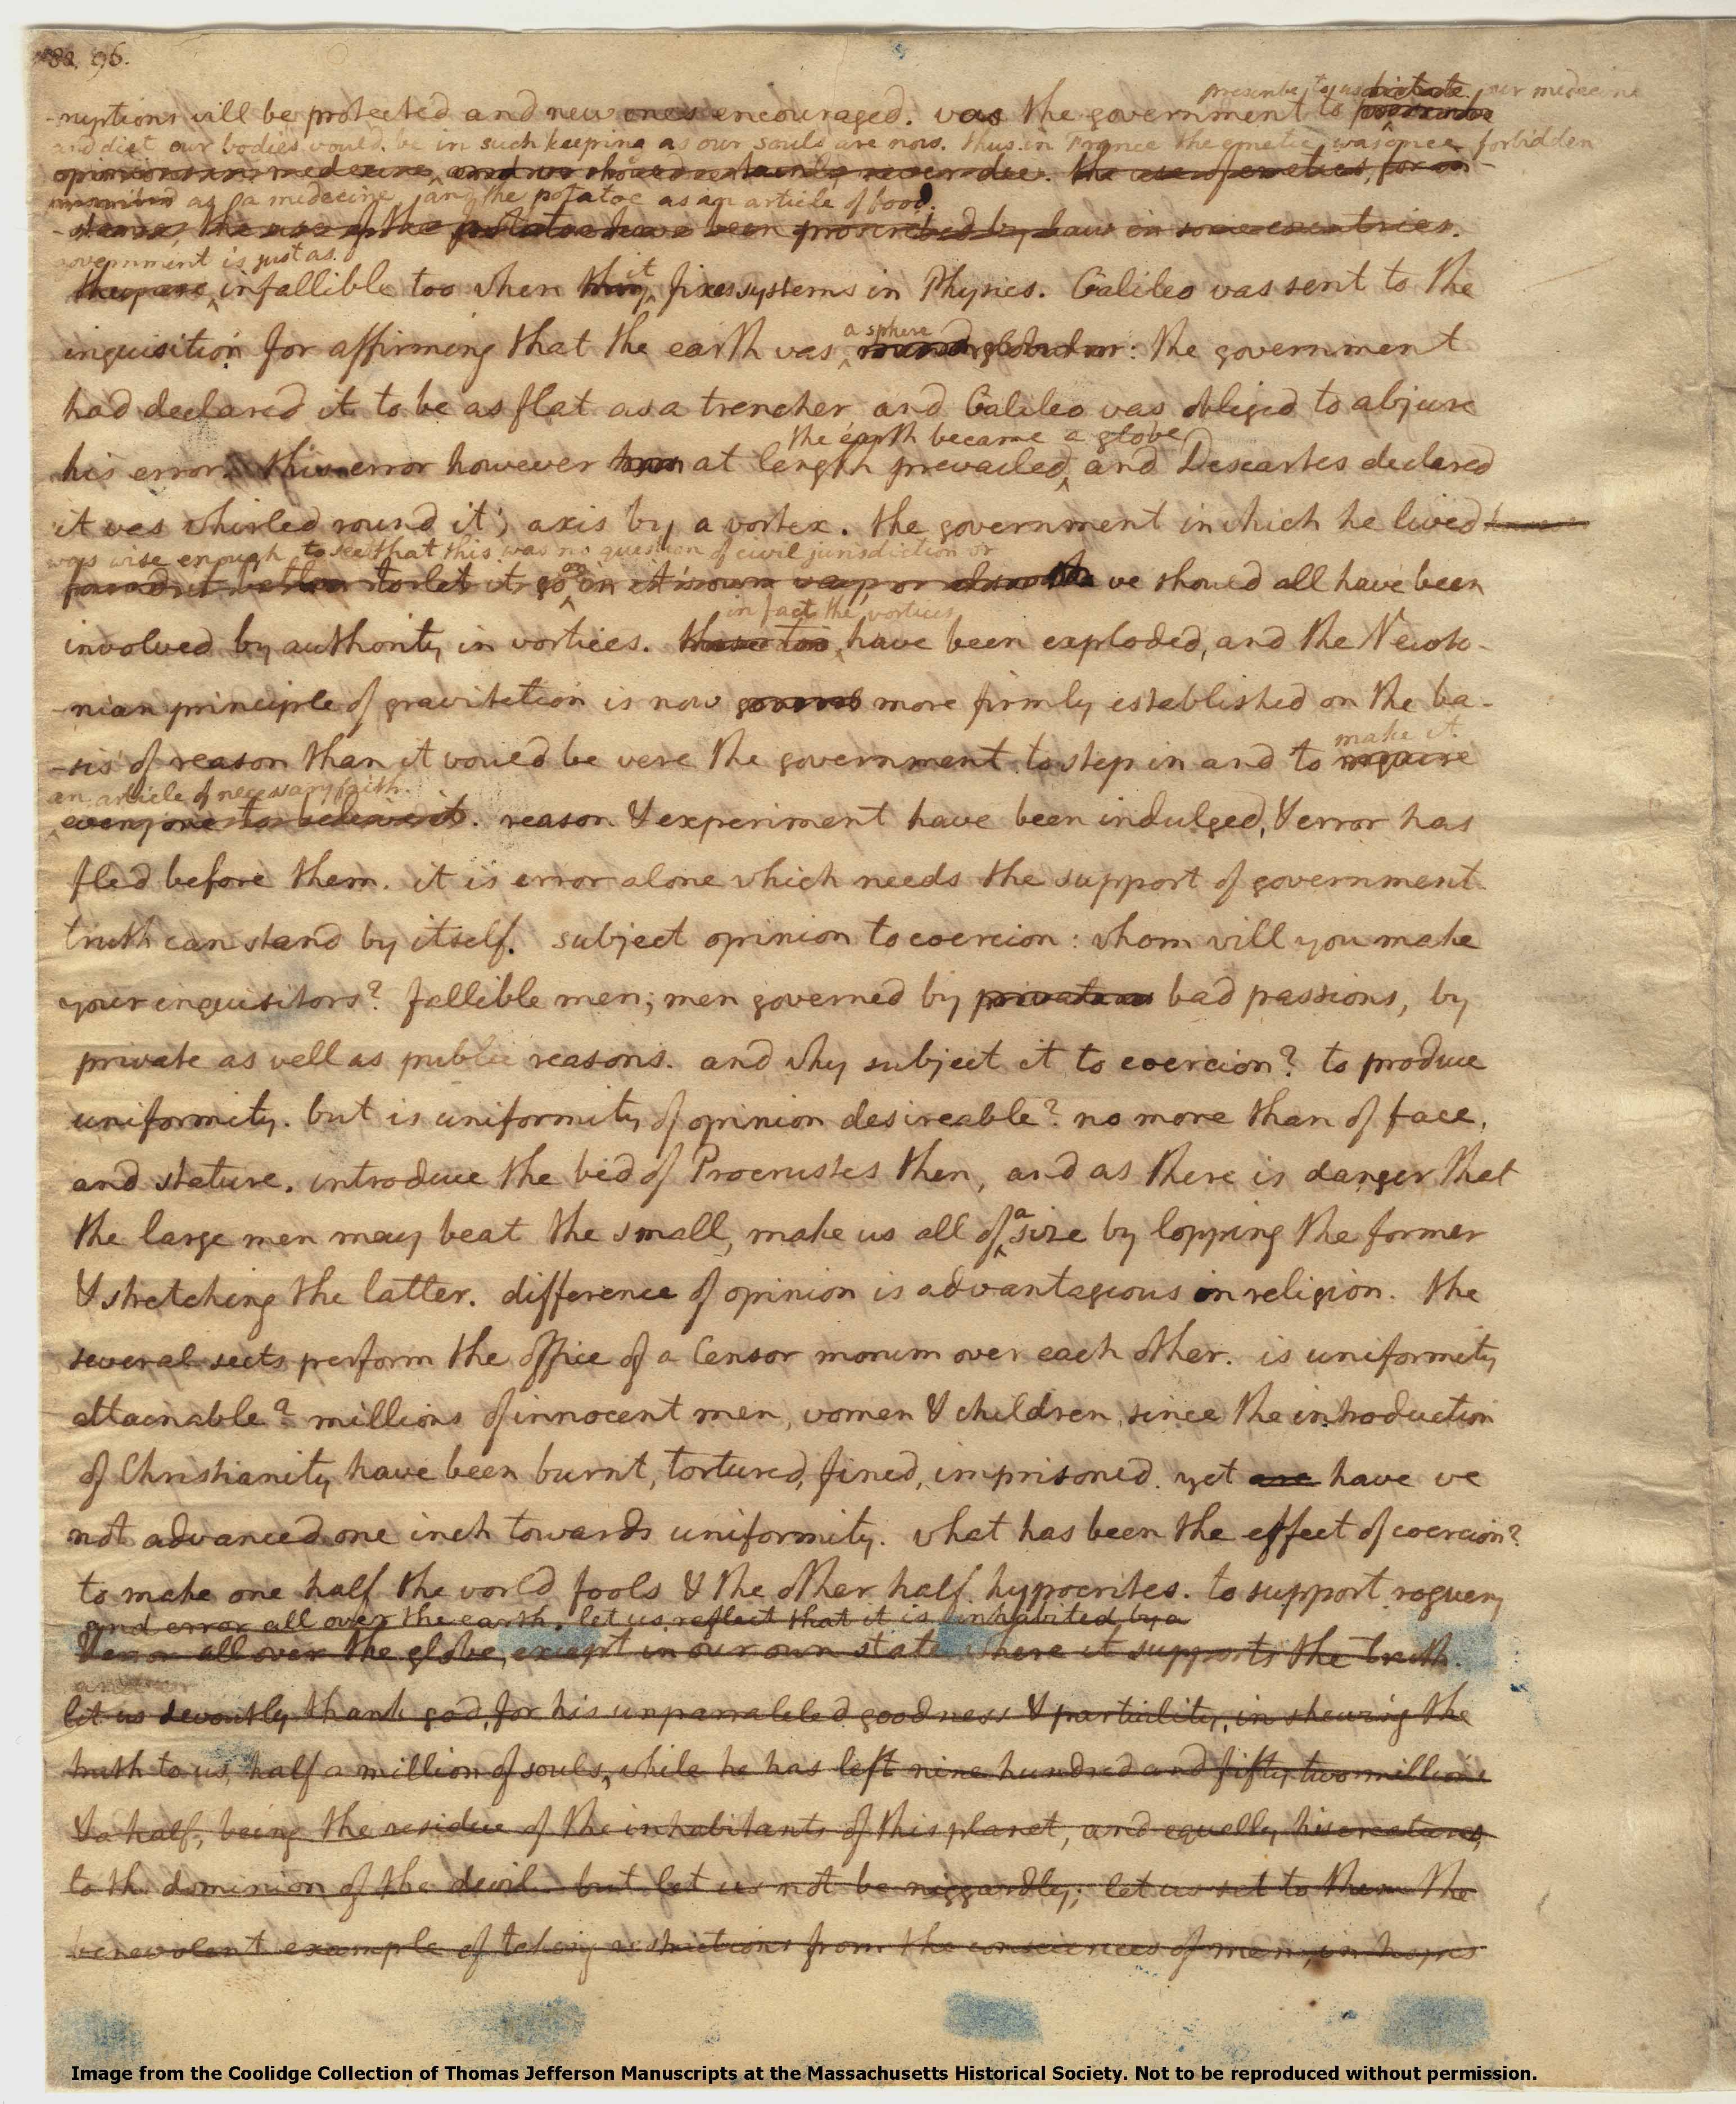 96.
prescribe to us dictate our medecine
-ruptions will be protected and new ones encouraged. was the government to prescribe
and diet, our bodies would be in such keeping as our souls are now. thus in France the emetic was once forbidden
opinions in medecine, and we should certainly never die. the use of emetics, for in-
as a medecine, and the potatoe as an article of food.
-stance, the use of the potatoe have been proscribed by law in some countries.
government is just as
they are infallible too when they it fixes systems in Physics. Galileo was sent to the
a sphere
inquisition for affirming that the earth was round globular: the government
had declared it to be as flat as a trencher and Galileo was obliged to abjure
the earth became a globe
his error. this error however has at length prevailed, and Descartes declared
it was whirled round it's axis by a vortex. the government in which he lived
was wise enough to see that this was no question of civil jurisdiction or
found it better to let it go on in it's own way, or else we should all have been
in fact the vortices
involved by authority in vortices. these too have been exploded, and the Newto-
-nian principle of gravitation is now more firmly established on the ba-
make it
-sis of reason than it would be were the government to step in and to require
an article of necessary faith.
every one to believe it. reason & experiment have been indulged, & error has
fled before them. it is error alone which needs the support of government.
truth can stand by itself. subject opinion to coercion: whom will you make
your inquisitors? fallible men; men governed by private bad passions, by
private as well as public reasons. and why subject it to coercion? to produce
uniformity. but is uniformity of opinion desireable? no more than of face,
and stature. introduce the bed of Procrustes then, and as there is danger that
the large men may beat the small, make us all of a size by lopping the former
& stretching the latter. difference of opinion is advantageous in religion. the
several sects perform the office of a Censor morum over each other. is uniformity
attainable? millions of innocent men, women & children, since the introduction
of Christianity have been burnt, tortured, fined, imprisoned. yet are have we
not advanced one inch towards uniformity. what has been the effect of coercion?
to make one half the world fools & the other half hypocrites. to support roguery
and error all over the earth. let us reflect that it is inhabited by a
& error all over the globe, except in our own state where it supports the truth.
let us devoutly thank god, for his unparraleled goodness & partiality, in shewing the
truth to us, half a million of souls, while he has left nine hundred and fifty two millions
& a half, being the residue of the inhabitants of this planet, and equally his creatures,
to the dominion of the devil. but let us not be niggardly; let us set to them the
benevolent example of taking restrictions from the consciences of men, in hopes
Image from the Coolidge Collection of Thomas Jefferson Manuscripts at the Massachusetts Historical Society. Not to be reproduced without permission.